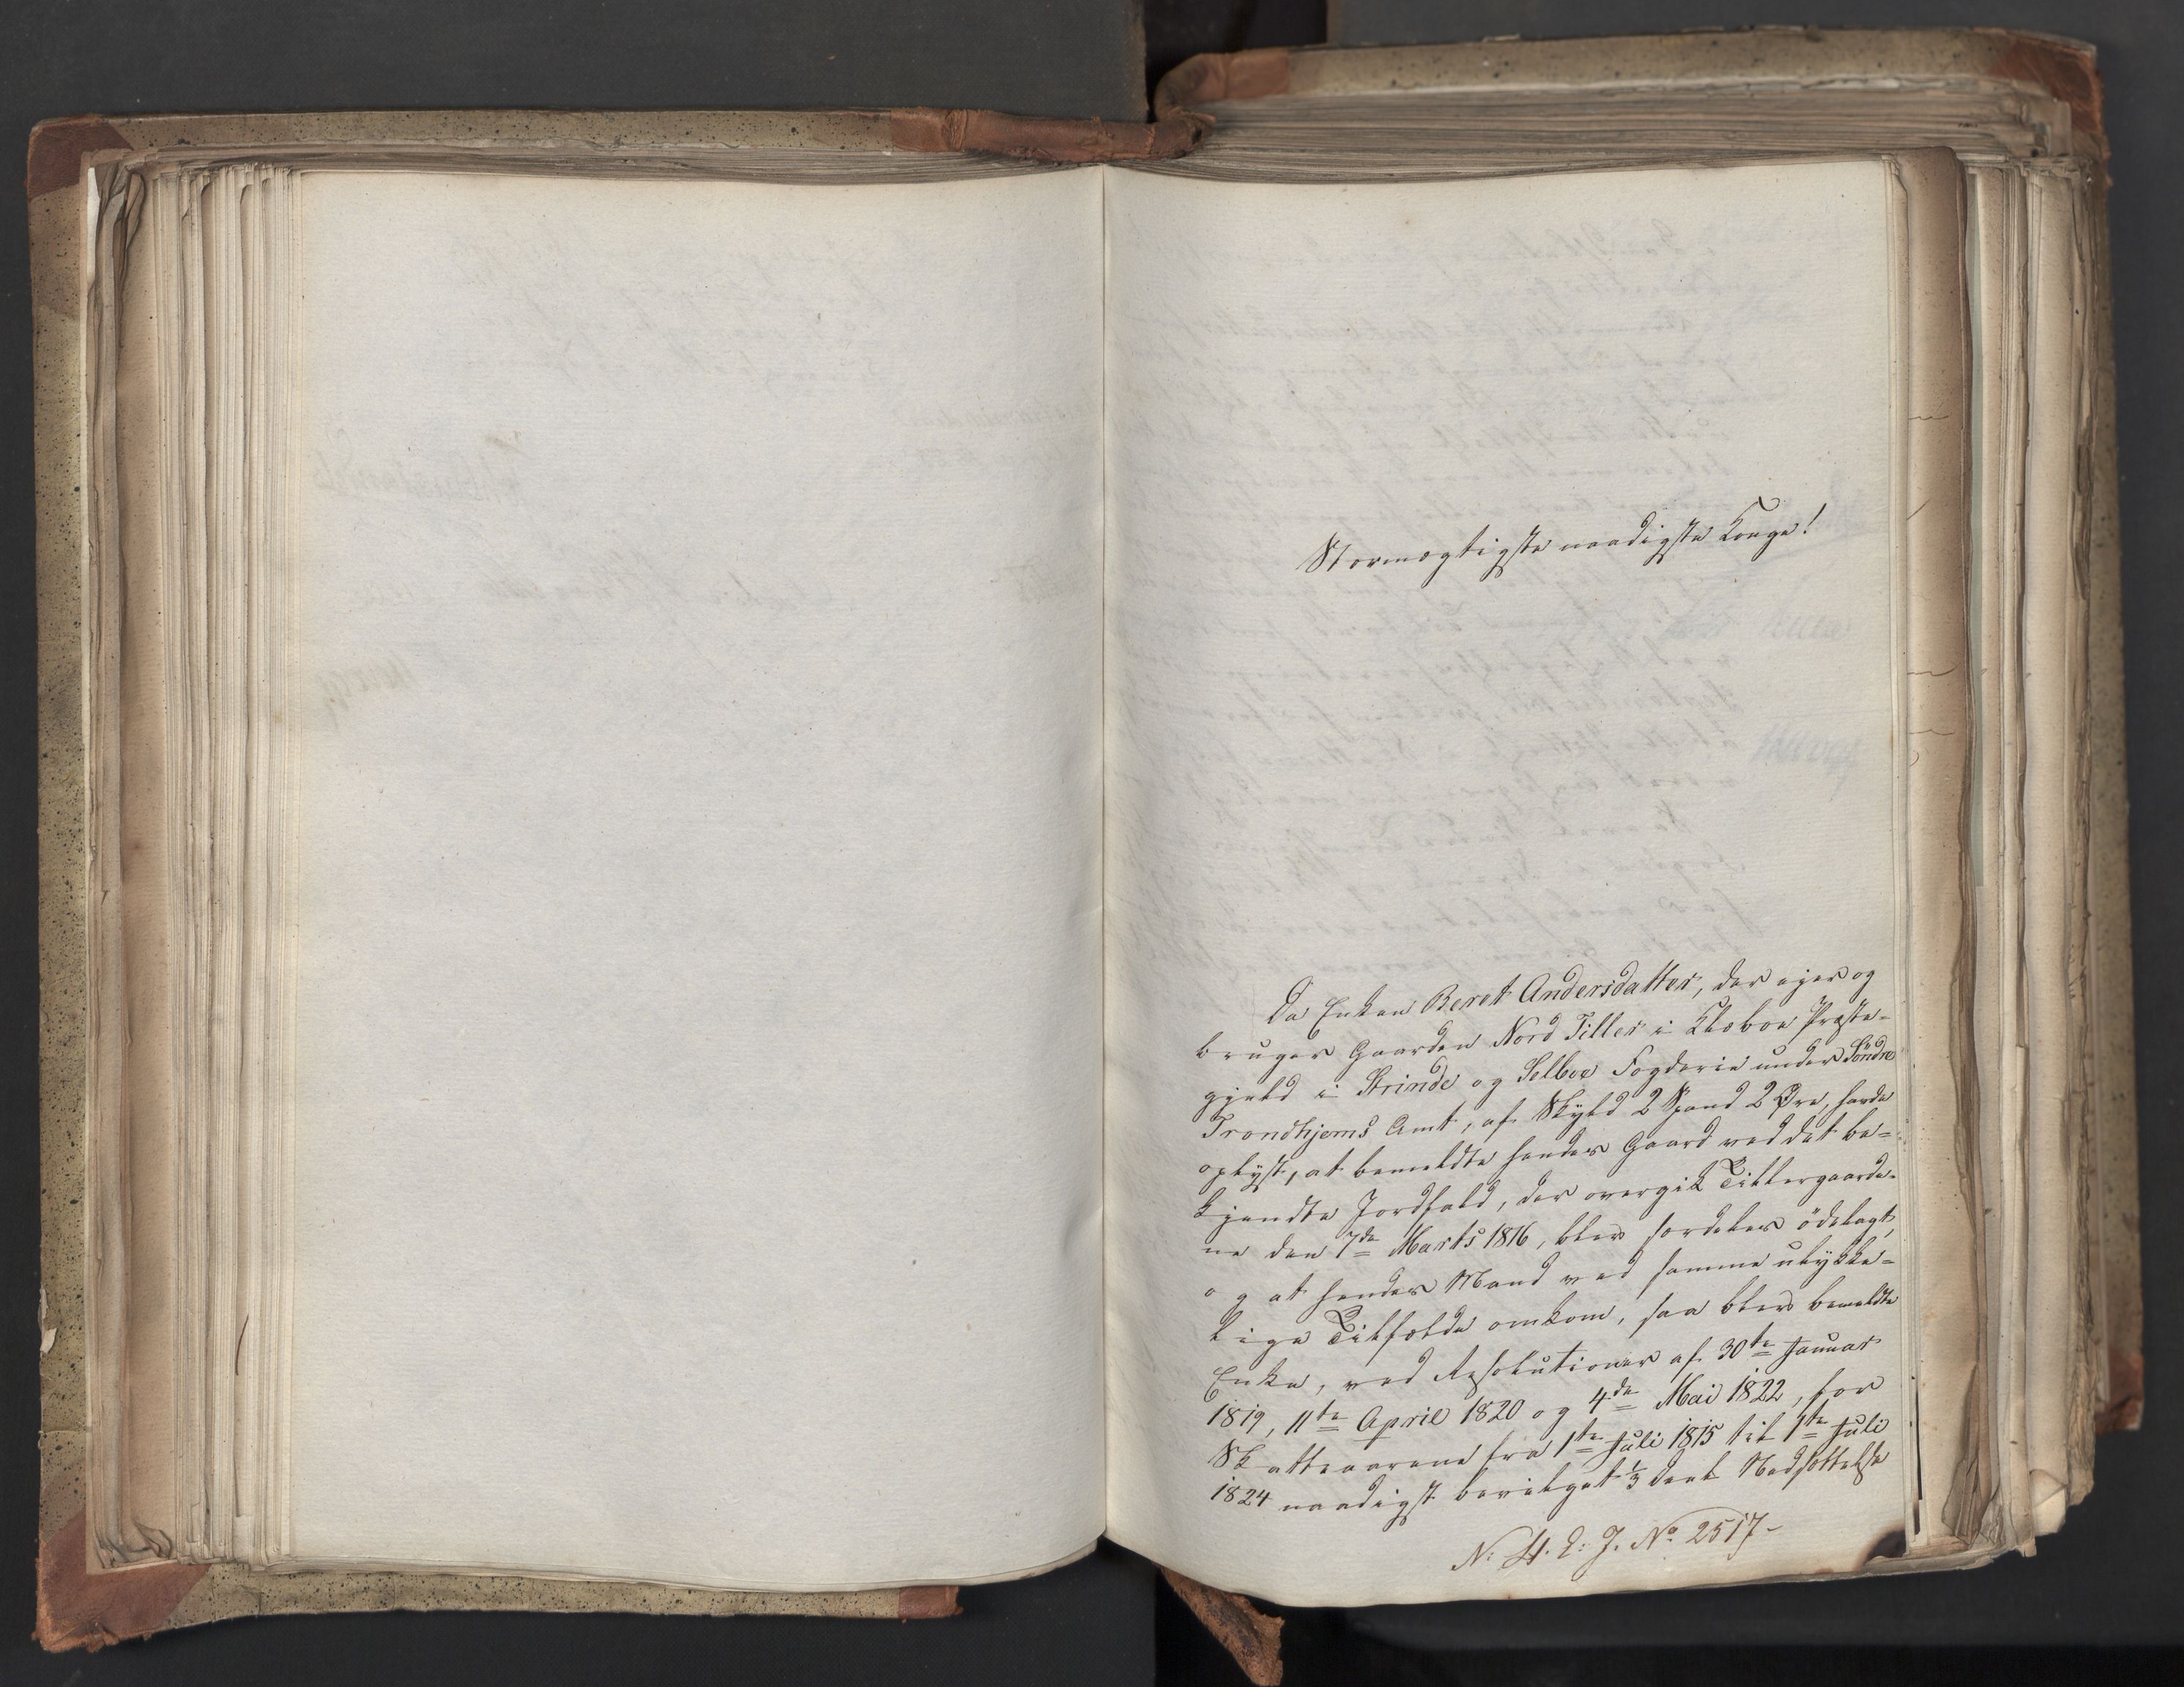 Stormægtigste naadigste Konge!
Da Enken Beret Andersdatter, der ejer og
bruger Gaarden Nord Tiller i Klæboe Præste-
gjeld i Strinde og Selboe Fogderie under Söndre
Trondhjems Amt, af Skyld 2 Spand 2 Øre, havde
oplyst, at bemeldte hendes Gaard ved det be-
kjendte Jordfald, der overgik Tillergaarde-
ne den 7de Marts 1816, blev særdeles ödelagt,
og at hendes Mand ved samme ulykke-
lige Tilfælde omkom, saa blev bemeldte
Enke, ved Resolutioner af 30te Januar
1819, 11te April 1820 og 4de Mai 1822, for
Skatteaarene fra 1te Juli 1815 til 1te Juli
1824 naadigst bevilget ⅓ Deel Nedsættelse
No 2517-